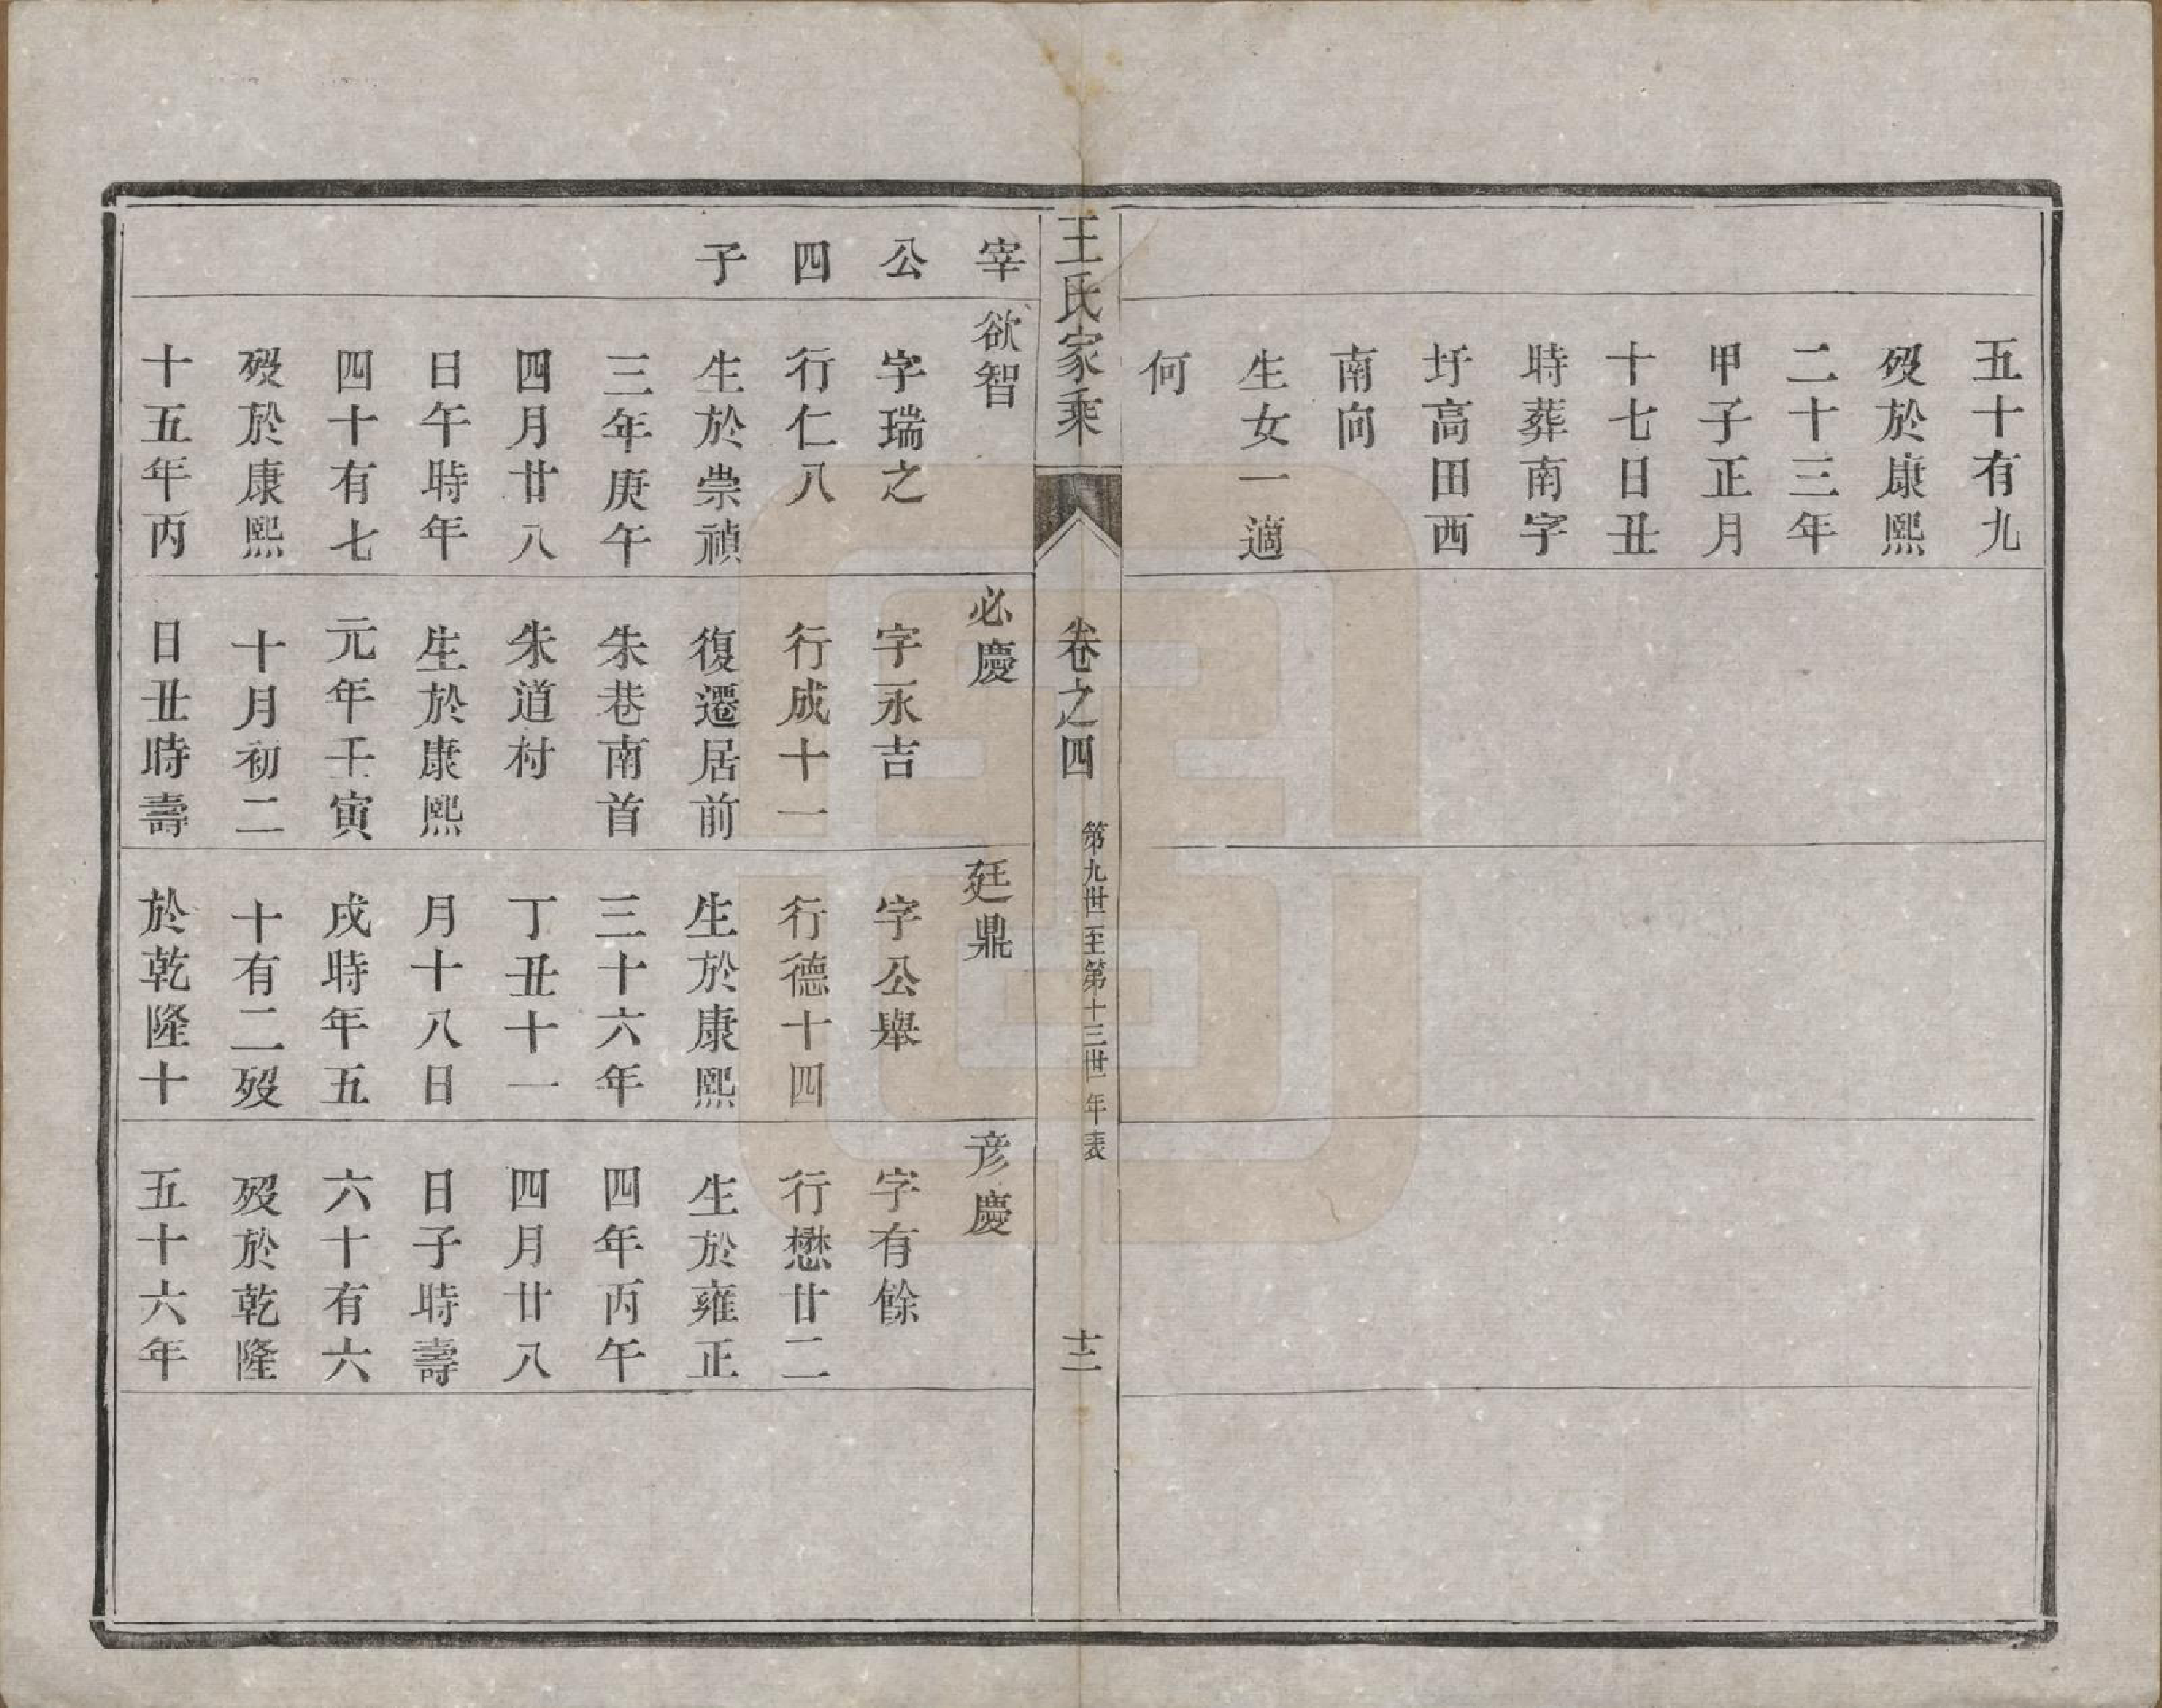 五十有九
歿於康熙
二十三年
甲子正月
十七日丑
時葬南字
圩高田西
南向
生女一適
何
王氏家乘
卷之四
第九世至第十三世年表
十二
宰
公
四
子
欲智
字瑞之
行仁八
生於崇禎
三年庚午
四月廿八
日午時年
四十有七
歿於康熙
十五年丙
必慶
字永吉
行成十一
復遷居前
朱巷南首
朱道村
生於康熙
元年壬寅
十月初二
日丑時壽
廷鼎
字公舉
行德十四
生於康熙
三十六年
丁丑十一
月十八日
戌時年五
十有二歿
於乾隆十
彦慶
字有餘
行懋廿二
生於雍正
四年丙午
四月廿八
日子時壽
六十有六
歿於乾隆
五十六年